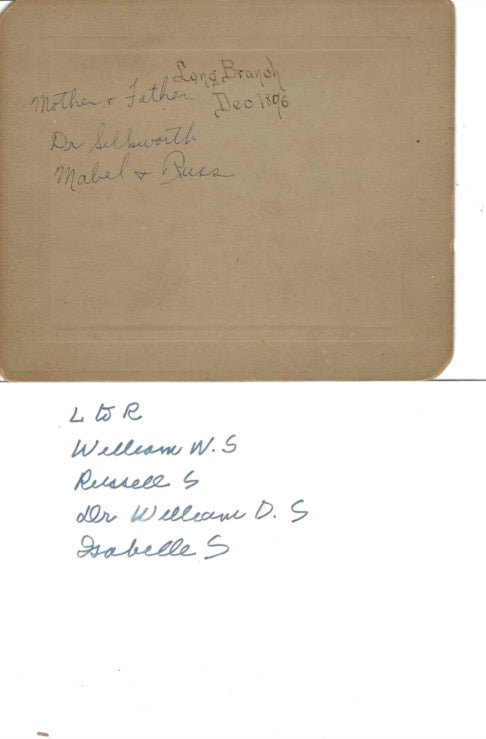 Long Branch
Mother & Father Dec 1896
Dr Silkworth
Mabel & Russ
L to R
William W. S
Russell S
Dr William D. S
Isabelle S